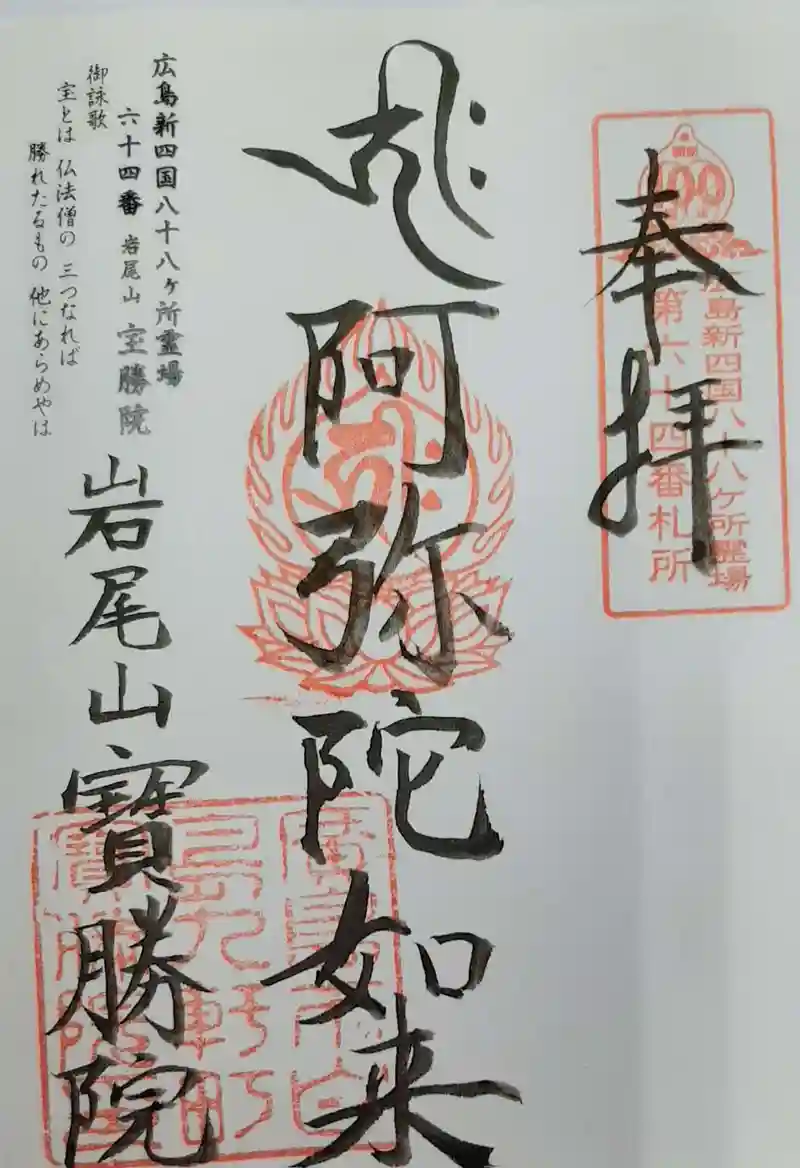 奉拝
広島新四国八十八ヶ所霊場
第六十四番札所
阿弥陀如来
広島新四国八十八ヶ所霊場
六十四番 岩尾山 宝勝院
御詠歌
宝とは 仏法僧の 三つなれば
勝れたるもの 他にあらめやは
岩尾山寳勝院